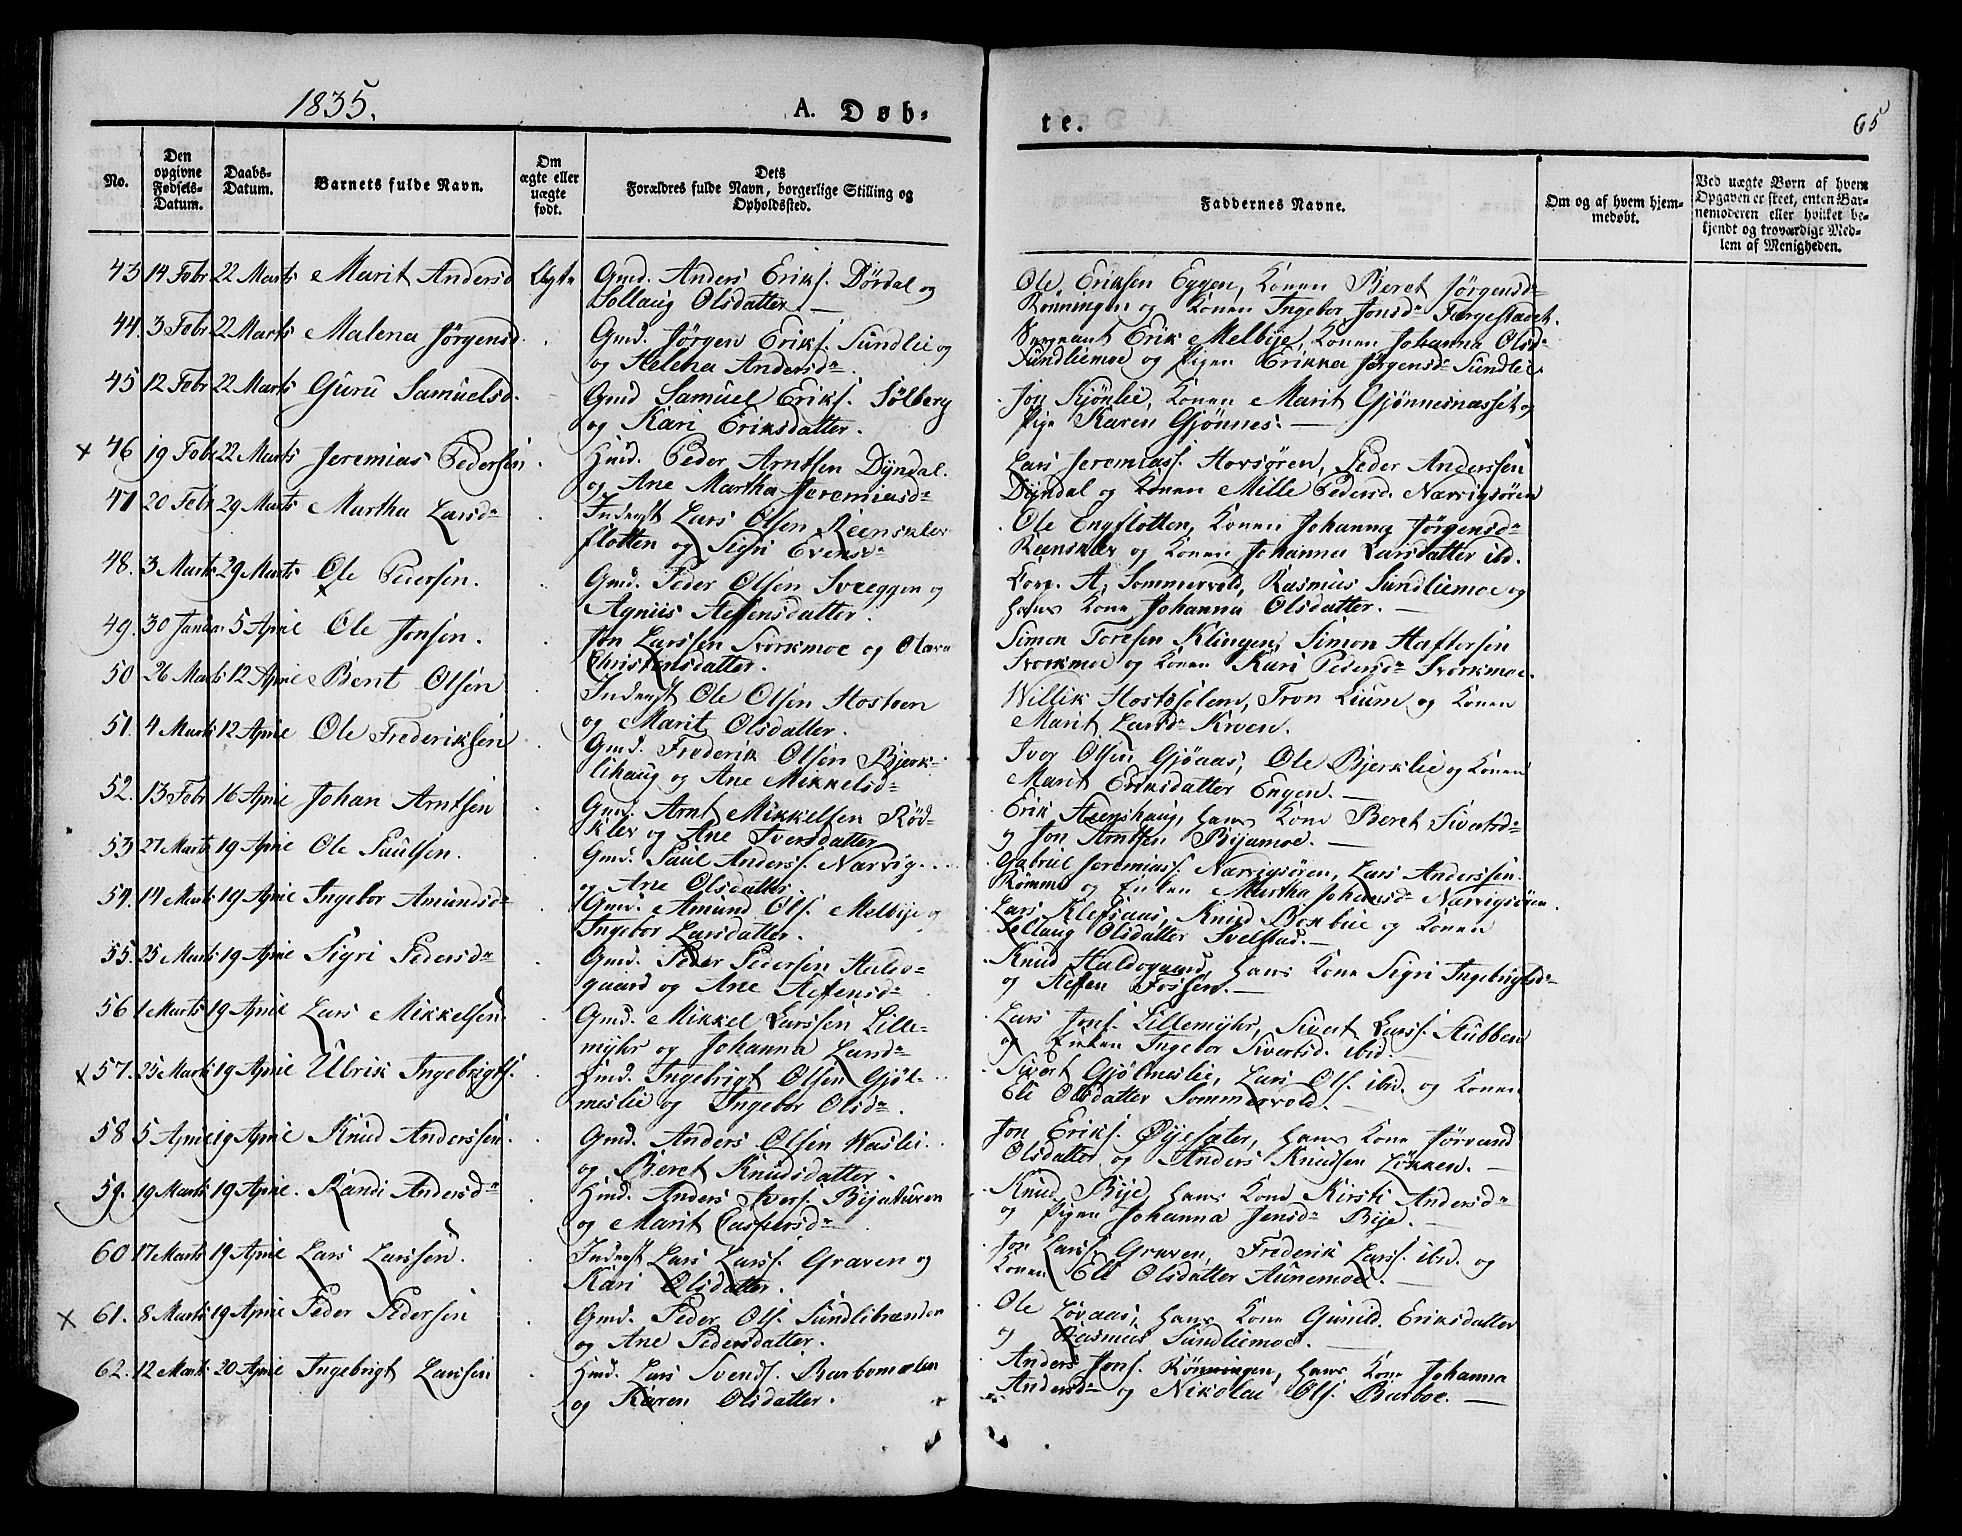 1835.
A. Døb-
te.
65
No.
Den opgivne Fødsels-Datum.
Daabs-Datum.
Barnets fulde Navn.
Om ægte eller uægte født.
Dets Forældres fulde Navn, borgerlige Stilling og Opholdssted.
Faddernes Navne.
Om og af hvem hjemmedøbt.
Ved uægte Børn af hvem Opgaven er skeet, enten Barnemoderen eller hvilket bekjendt og troværdigt Medlem af Menigheden.
43 14 Febr 22 Marts Marit Andersd Ægte Gmd. Anders Eriks. Dørdal og
Sollaug Olsdatter. —
Ole Eriksen Eggen, Konen Beret Jørgensdr
Rønningen og Konen Ingebor Jonsdr Fargestadet.
44. 3 Febr 22 Marts Malena Jørgensd. Gmd. Jørgen Eriks. Sundlie og
og Helena Andersdr.
Sergeant Erik Melbye, Konen Johanna Olsdr
Sundliemoe og Pigen Erikka Jørgensdr Sundlie.
45 12 Febr 22 Marts Guru Samuelsd. Gmd Samuel Eriks. Sølberg
og Kari Eriksdatter.
Jon Kjønlie, Konen Marit Gjønnesnæsset og
Pige Karen Gjønnes. —
x 46 19 Febr 22 Marts Jeremias Pedersen. Hmd. Peder Arntsen Dyndal.
og Ane Martha Jeremiasdr
Lars Jeremiass. Hovsøren, Peder Anderssen
Dyndal og Konen Mille Pedersd. Narvigsøren
47 20 Febr 29 Marts Martha Larsdr Inderst Lars Olsen Reensklev
flotten og Sigri Evensdr
Ole Engflotten, Konen Johanna Jørgensdr
Reensklev og Konen Johanna Larsdatter ibd.
48. 3 Marts 29 Marts Ole Pedersen. Gmd. Peder Olsen Sveeggen og
Agnius Steffensdatter.
Corp. A. Sommervold, Rasmus Sundliemoe og
hans Kone Johanna Olsdatter. —
49. 30 Januar 5 April Ole Jonsen. Jon Larssen Svorkmoe og Olava
Christensdatter.
Simon Toresen Klingen, Simon Haftorsen
Svorkmoe og Konen Kari Pedersdr Svorkmoe.
50 26 Marts 12 April Bent Olsen Inderst Ole Olsen Hostoen
og Marit Olsdatter.
Willik Hostosølem, Tron Lium og Konen
Marit Larsdr Kroen.
51. 4 Marts 12 April Ole Frederiksen Gmd. Frederik Olsen Bjerk-
lihaug og Ane Mikkelsdr
Iver Olsen Gjøaas, Ole Bjerklie og Konen
Marit Eriksdatter Engen. —
52. 13 Febr 16 April Johan Arntsen Gmd. Arnt Mikkelsen Rød-
klev og Ane Iversdatter
Erik Steenshaug, hans Kone Beret Sivertsdr
og Jon Arntsen Byamoe. —
53 27 Marts 19 April Ole Paulsen. Gmd. Paul Anderss. Narvig.
og Ane Olsdatter.
Gabriel Jeremiass. Narvigsøren, Lars Anderssen
Rømme og Enken Martha Johansdr Narvigsøren.
54. 14 Marts 19 April Ingebor Amundsdr Gmd. Amund Ols. Melbye og
Ingebor Larsdatter.
Lars Klefsaas, Knud Boxbue og Konen
Sollaug Olsdatter Svelstad. —
55. 25 Marts 19 April Sigri Pedersdr Gmd. Peder Pedersen Haldo-
gaard og Ane Steffensdr
Knud Haldogaard, hans Kone Sigri Ingebrigtsdr
og Steffen Fossen. —
56 1 Marts 19 April Lars Mikkelsen. Gmd. Mikkel Larssen Lille-
myhr og Johanna Larsdr
Lars Jons. Lillemyhr, Sivert Larss. Stubben
og Enken Ingebor Sivertsd. ibid.
x 57. 25 Marts 19 April Ulrik Ingebrigts. Gmd. Ingebrigt Olsen Gjøl-
meslie og Ingebor Olsdr.
Sivert Gjølmeslie, Lars Ols. ibid. og Konen
Eli Olsdatter Sommervold. —
58 5 April 19 April Knud Anderssen. Gmd. Anders Olsen Waslie.
og Beret Knudsdatter.
Jon Eriks. Øyesæter, hans Kone Jørand
Olsdatter og Anders Knudsen Løkken. —
59. 19 Marts 19 April. Randi Andersdr Hmd. Anders Ivers.
og Marit Caspersdr
Knud Bye, hans Kone Kirsti Andersdr
og Pigen Johanna Jensdr Bye. —
60 17 Marts 19 April Lars Larssen. Inderst Lars Larss. Graven og
Kari Olsdatter.
Jon Larss. Graven, Frederik Larss. ibid. og
Konen Eli Olsdatter Aunemoe. —
x 61. 8 Marts 19 April Peder Pedersen Gmd. Peder Ols. Sundlibrænden
og Ane Pedersdatter.
Ole Løvaas, hans Kone Gunild Eriksdatter
og Rasmus Sundliemoe. —
62. 12 Marts 20 April Ingebrigt Larssen Hmd. Lars Svends. Barbomælen
og Karen Olsdatter.
Anders Jons. Rønningen, hans Kone Johanna
Andersdr og Nikolai Ols. Barboe. —